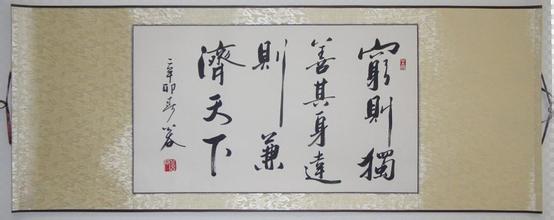 窮則獨
善其身達
則兼
濟天下
辛卯